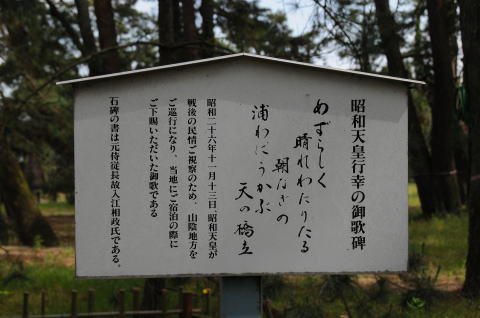 昭和天皇行幸の御歌碑
めずらしく
晴れわたりたる
朝なぎの
浦わにうかぶ
天の橋立
昭和二十六年十一月十三日、昭和天皇が
戦後の民情ご視察のため、山陰地方を
ご巡行になり、当地にご宿泊の際に
ご下賜いただいた御歌である
石碑の書は元侍従長故入江相政氏である。